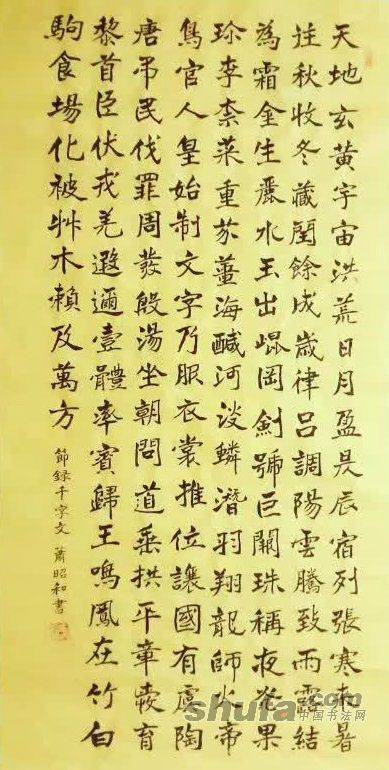 天地玄黃宇宙洪荒日月盈昃辰宿列張寒來暑
往秋收冬藏閏餘成歲律呂調陽雲騰致雨露結
為霜金生麗水玉出崐岡劍號巨闕珠稱夜光果
珍李柰菜重芥薑海鹹河淡鱗潛羽翔龍師火帝
鳥官人皇始制文字乃服衣裳推位讓國有虞陶
唐吊民伐罪周發殷湯坐朝問道垂拱平章愛育
黎首臣伏戎羌遐邇壹體率賓歸王鳴鳳在竹白
駒食場化被艸木賴及萬方
節録千字文 蕭昭和書
shufa.com
中国书法网